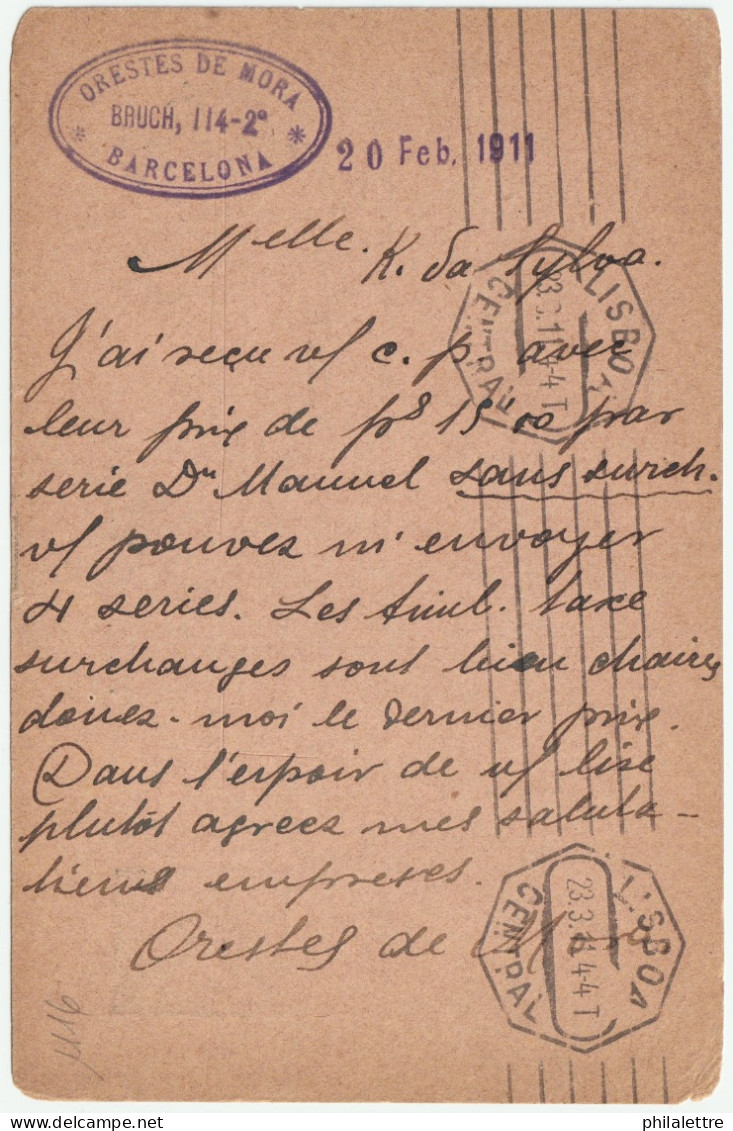 ORESTES DE MORA
BRUCH, 114-2º
* BARCELONA *
20 Feb. 1911
Melle. K. da Sylva.
J'ai reçu v/ c. p. avec
leur prix de ps 15'00 par
serie Dn Manuel sans surch.
v/ pouvez m'envoyer
4 series. Les timb. taxe
surchanges sont bien chaires
donez-moi le dernier prix.
Dans l'espoir de v/ lise
plutôt agreez mes saluta-
tiens empreses.
Orestes de Mora
LISBOA
CENTRAL
23.3.11 4-4 T
LISBOA
CENTRAL
23.3.11 4-4 T
1116
philalettre